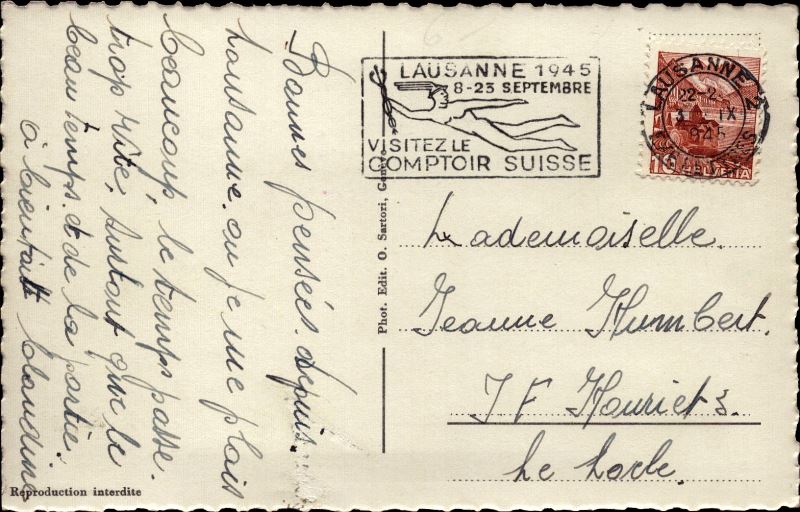 Bonnes pensées depuis
Lausanne. ou je me plais
beaucoup, le temps passe
trop vite, surtout que le
beau temps est de la partie.
à bientôt Claudine
Reproduction interdite
Phot. Edit. O. Sartori, Genève
LAUSANNE 1945
8-23 SEPTEMBRE
VISITEZ LE
COMPTOIR SUISSE
LAUSANNE 2
22-2
IX
1945
10
HELVETIA
Mademoiselle.
Jeanne Humbert.
J F Houriet 3.
Le Locle.